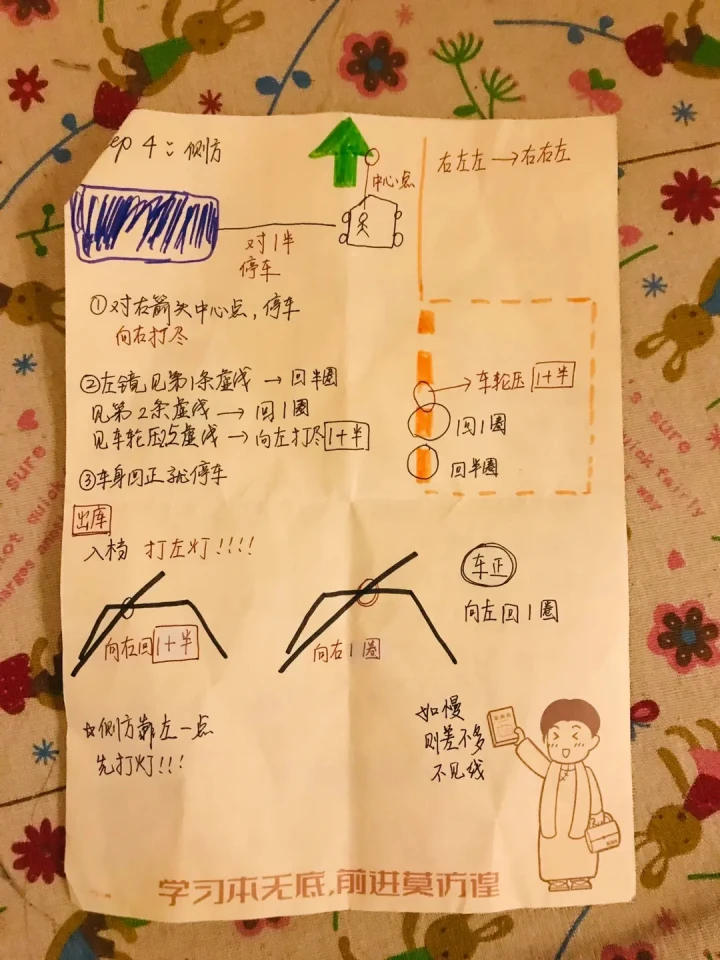 ep 4：侧方
中心点
右左左→右右左
对1半
停车
①对右箭头中心点，停车
向右打尽
②左镜见第1条虚线→回半圈
见第2条虚线→回1圈
见车轮压2点虚线→向左打尽1+半
③车身回正就停车
车轮压1+半
回1圈
回半圈
出库
入档 打左灯!!!!
向右回1+半
向右1圈
车正
向左回1圈
☆侧方靠左一点
先打灯!!!
如慢
则差不多
不见线
学习本无底,前进莫彷徨
sure
not quick
fairly